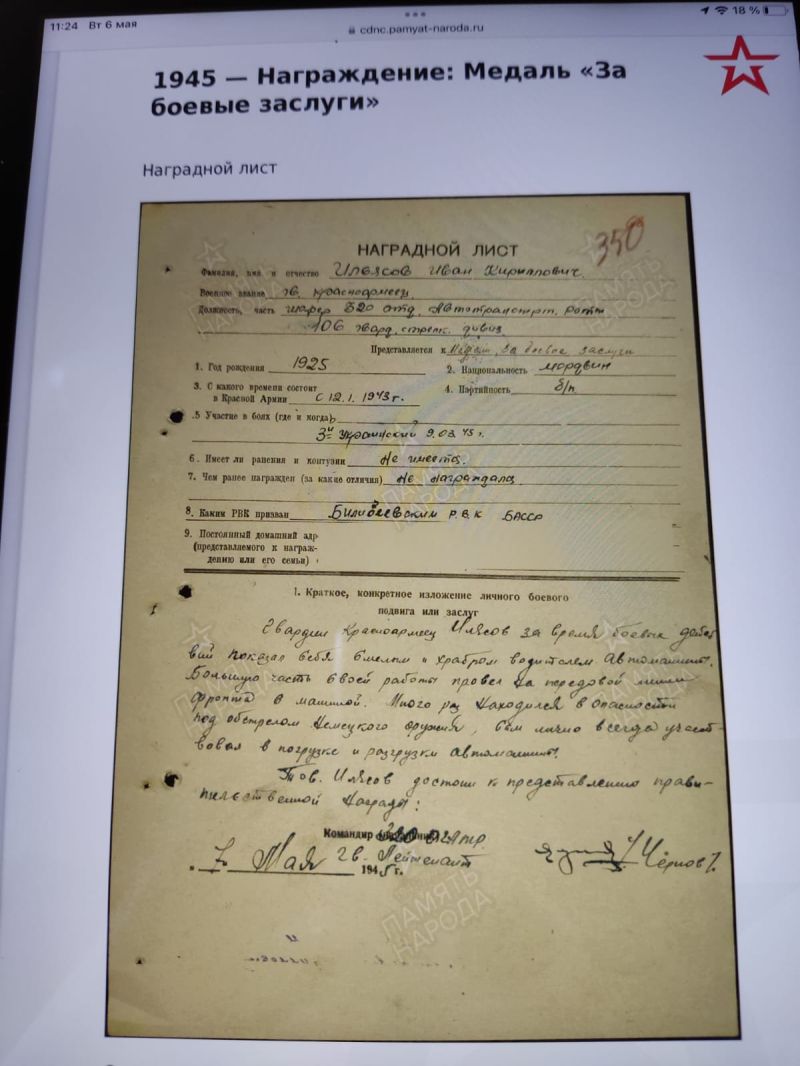 11:24 Вт 6 мая
18 %
cdnc.pamyat-naroda.ru
1945 — Награждение: Медаль «За
боевые заслуги»
Наградной лист
350
НАГРАДНОЙ ЛИСТ
Фамилия, имя и отчество Ильясов Иван Кириллович.
Военное звание гв. красноармеец
Должность, часть шофер 320 отд. Автотранспорт. Роты
106 гвард. стрелк. дивиз.
Представляется к Медали За боевые заслуги
1. Год рождения 1925
2. Национальность мордвин
3. С какого времени состоит
в Красной Армии с 12.1.1943 г.
4. Партийность б/п
5 Участие в боях (где и когда)
3й Украинский 9.03.45 г.
6. Имеет ли ранения и контузии Не имеет.
7. Чем ранее награжден (за какие отличия) Не награждался
8. Каким РВК призван Р.В.К БАССР
9. Постоянный домашний адр
(представляемого к награж-
дению или его семьи)
1. Краткое, конкретное изложение личного боевого
подвига или заслуг
Гвардии Красноармеец Илясов за время боевых дейст
вий показал себя смелым и храбром водителем Автомашины.
Большую часть своей работы провел на передовой линии
фронта с машиной. Много раз находился в опасности
под обстрелом Немецкого оружия, Сам лично всегда участ
вовал в погрузке и разгрузки автомашины.
Тов. Илясов достоин к представлению прави-
тельственной Награды:
Командир 320
7 Мая 1945 г. Гв. Лейтенант
/Чернов/.
ПАМЯТЬ
НАРОДА